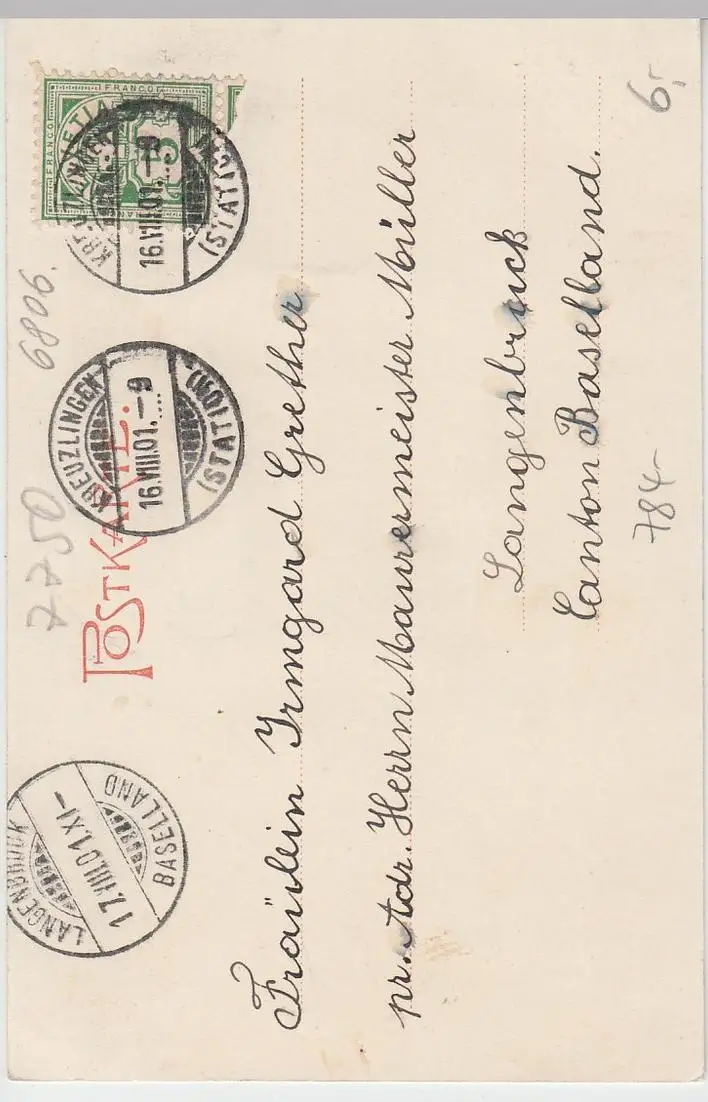 7750
6806.
POSTKARTE.
FRANCO
HELVETIA
FRANCO
5
KREUZLINGEN
16.VIII.01.–9
(STATION)
KREUZLINGEN
16.VIII.01.–9
(STATION)
LANGENBRUCK
17.VIII.01.XI–
BASELLAND
Fräulein Irmgard Grether
pr. Adr. Herrn Maurermeister Müller
Langenbruck
Canton Baselland.
784-
6,-